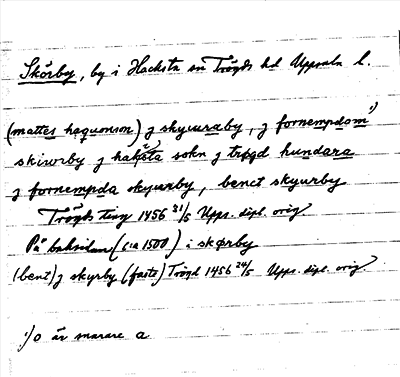 Skörby, by i Hacksta sn Trögds hd Uppsala l.
(mattes haquonson) j skyuuraby, j fornempdom 1)
skiworby j haksta sokn j trøgd hundara
j fornempda skyurby, benct skyurby
Trögds ting 1456 21/5 Upps. dipl. orig
På baksidan (ca 1500) i skørby
(bent) j skyrby (faste) Trögd 1456 24/5 Upps. dipl. orig.
1) o är snarare a